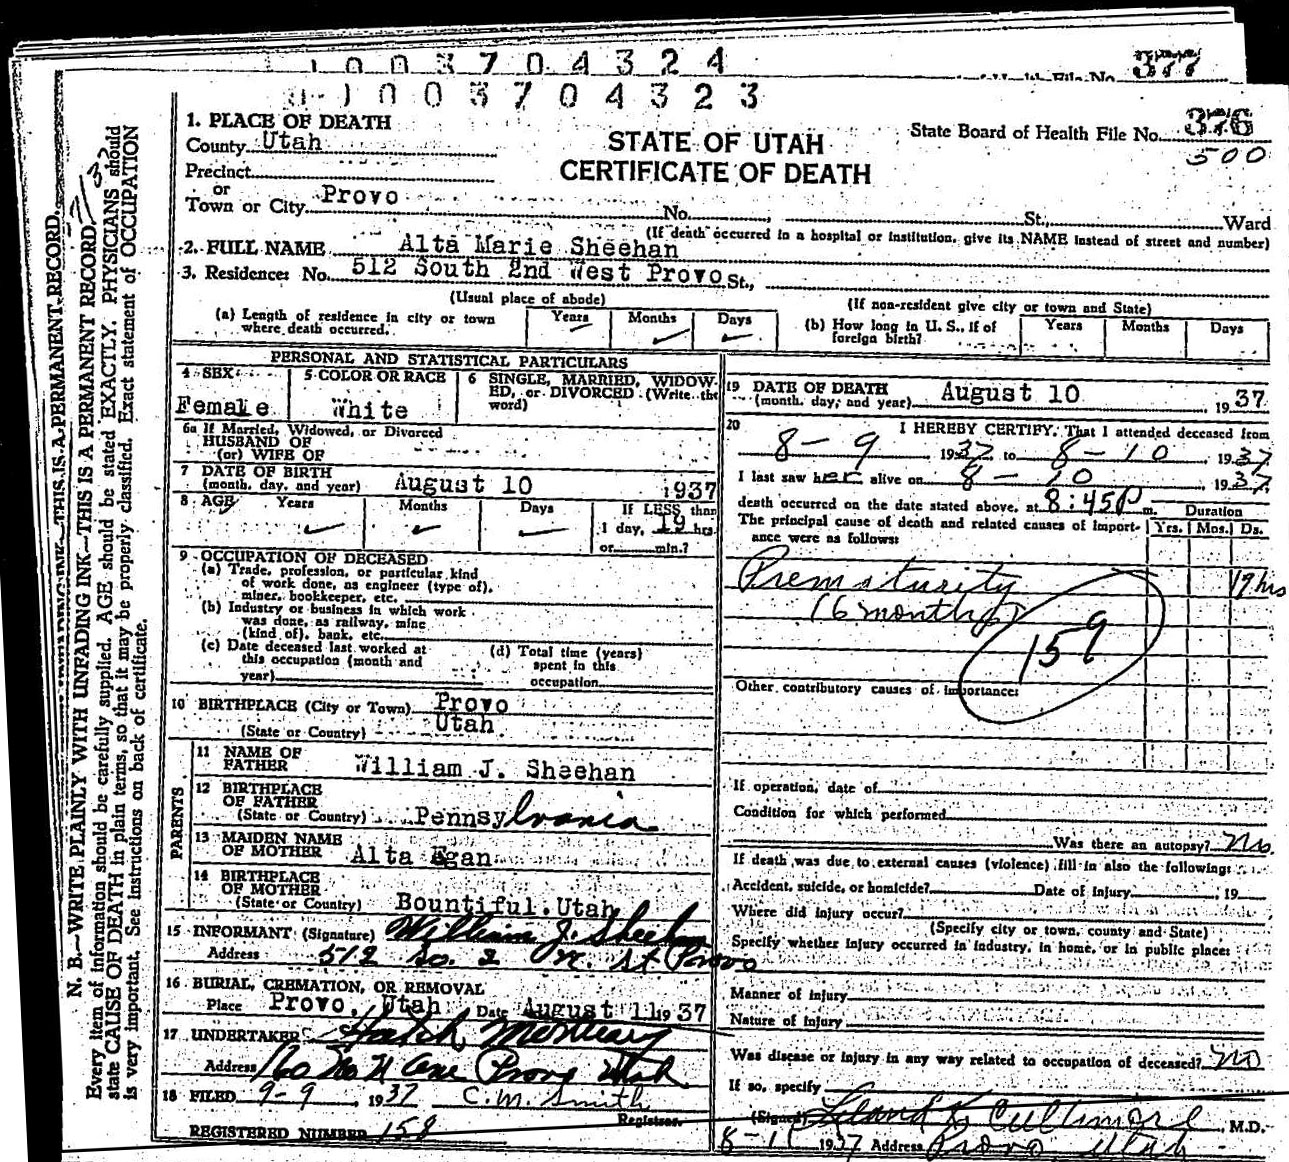 1003704324
377
1003704323
1. PLACE OF DEATH
County Utah
STATE OF UTAH
CERTIFICATE OF DEATH
State Board of Health File No. 376
500
Precinct
or
Town or City Provo No. St., Ward
(If death occurred in a hospital or institution, give its NAME instead of street and number)
2. FULL NAME Alta Marie Sheehan
3. Residence: No. 512 South 2nd West Provo St.,
(Usual place of abode) (If non-resident give city or town and State)
(a) Length of residence in city or town where death occurred. Years Months Days
(b) How long in U. S., if of foreign birth? Years Months Days
PERSONAL AND STATISTICAL PARTICULARS
4 SEX 5 COLOR OR RACE 6 SINGLE, MARRIED, WIDOW-
ED, or DIVORCED (Write the
word)
Female White
6a If Married, Widowed, or Divorced
HUSBAND OF
(or) WIFE OF
7 DATE OF BIRTH
(month, day, and year) August 10 1937
8 AGE Years Months Days If LESS than
1 day, 19 hrs.
or min.?
9 OCCUPATION OF DECEASED
(a) Trade, profession, or particular kind
of work done, as engineer (type of),
miner, bookkeeper, etc.
(b) Industry or business in which work
was done, as railway, mine
(kind of), bank, etc.
(c) Date deceased last worked at
this occupation (month and
year)
(d) Total time (years)
spent in this
occupation
10 BIRTHPLACE (City or Town) Provo
(State or Country) Utah
PARENTS
11 NAME OF
FATHER William J. Sheehan
12 BIRTHPLACE
OF FATHER
(State or Country) Pennsylvania
13 MAIDEN NAME
OF MOTHER Alta Egan
14 BIRTHPLACE
OF MOTHER
(State or Country) Bountiful Utah
15 INFORMANT (Signature) William J. Sheehan
Address 512 So. 2 W. St Provo
16 BURIAL, CREMATION, OR REMOVAL
Place Provo, Utah Date August 11 1937
17 UNDERTAKER Hatch Mortuary
Address 160 No Provo Utah
18 FILED 9-9 1937 C.M. Smith
Registrar.
REGISTERED NUMBER 158
19 DATE OF DEATH
(month, day, and year) August 10, 1937
20 I HEREBY CERTIFY, That I attended deceased from
8-9, 1937 to 8-10, 1937
I last saw her alive on 8-10, 1937
death occurred on the date stated above, at 8:45P m. Duration
The principal cause of death and related causes of import-
ance were as follows: Yrs. Mos. Ds.
Prematurity 19 hrs
(6 months)
159
Other contributory causes of importance:
If operation, date of
Condition for which performed
Was there an autopsy? No
If death was due to external causes (violence) fill in also the following:
Accident, suicide, or homicide? Date of injury , 19
Where did injury occur?
(Specify city or town, county and State)
Specify whether injury occurred in industry, in home, or in public place:
Manner of injury
Nature of injury
Was disease or injury in any way related to occupation of deceased? No
If so, specify
(Signed) Leland K. Cullimore, M.D.
8-11 1937 Address Provo, Utah
N. B.—WRITE PLAINLY WITH UNFADING INK—THIS IS A PERMANENT RECORD.
Every item of information should be carefully supplied. AGE should be stated EXACTLY. PHYSICIANS should
state CAUSE OF DEATH in plain terms, so that it may be properly classified. Exact statement of OCCUPATION
is very important. See instructions on back of certificate.